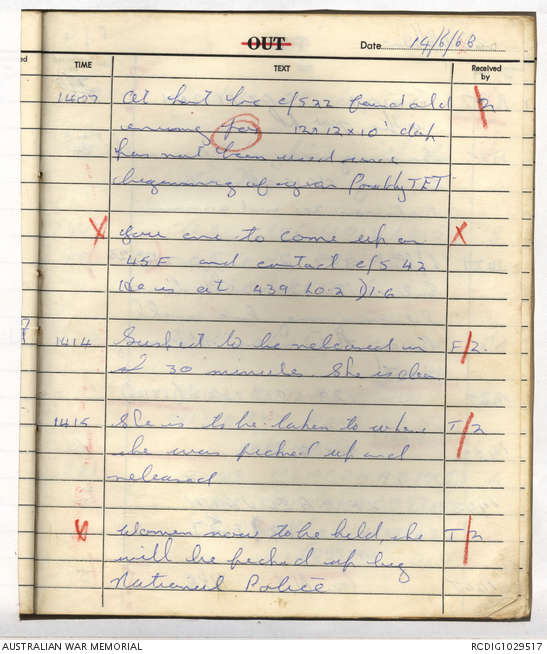 OUT
Date 14/6/68
TIME TEXT Received by
1407 At last loc c/s 22 found old 2
enemy 12x12x10' deep
has not been used since
beginning of year Possibly TET
X You are to come up on X
45F and contact c/s 42
He is at 439 40.2 D1.6
1414 Suspect to be released in F/2.
30 minutes. She is clear
1415 She is to be taken to where T/2
she was picked up and
released
Women now to be held, she T/2
will be picked up by
National Police
AUSTRALIAN WAR MEMORIAL RCDIG1029517